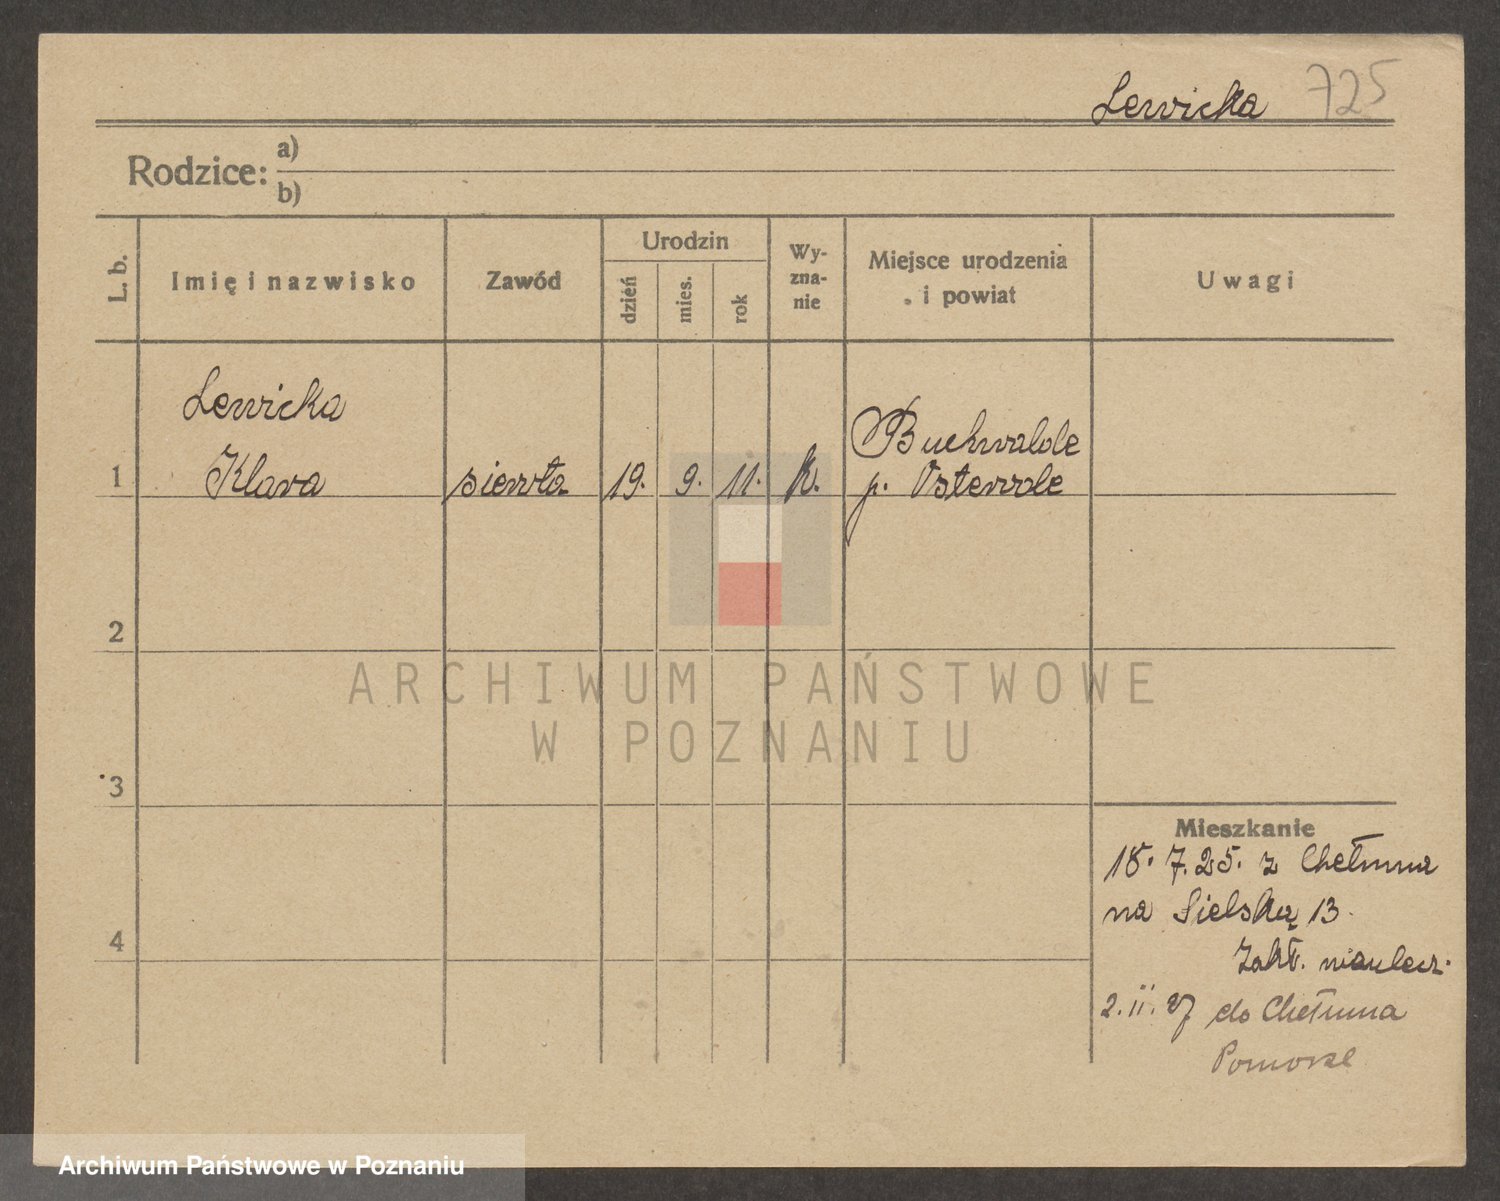 Lewicka 725
Rodzice: a)
b)
L. b.
Imię i nazwisko
Zawód
Urodzin
dzień
mies.
rok
Wy-
zna-
nie
Miejsce urodzenia
i powiat
Uwagi
Lewicka
1 Klara sierota 19. 9. 11. k. Buchwalde
p. Osterode
2
3
4
Mieszkanie
18. 7. 25. z Chełmna
na Sielską 13.
Zakł.
2. II. 27 do Chełmna
Pomorze
ARCHIWUM PAŃSTWOWE
W POZNANIU
Archiwum Państwowe w Poznaniu